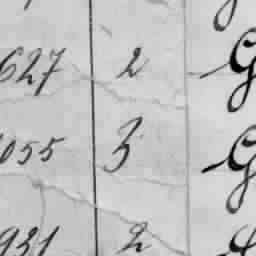 627 2 G
055 3 G
931 2